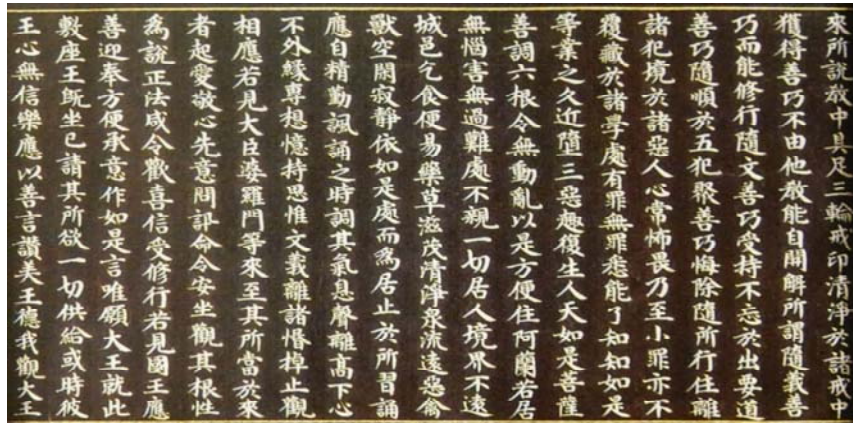 來所說教中具足三輪戒印清淨於諸戒中
獲得善巧不由他教能自開解所謂隨義善
巧而能修行隨文善巧受持不忘於出要道
善巧隨順於五犯聚善巧悔除隨所行住離
諸犯境於諸惡人心常怖畏乃至小罪亦不
覆藏於諸學處有罪無罪悉能了知知如是
等業之久近墮三惡趣復生人天如是菩薩
善調六根令無動亂以是方便住阿蘭若居
無惱害無過難處不親一切居人境界不遠
城邑乞食便易藥草滋茂清淨泉流遠惡禽
獸空閑寂靜依如是處而為居止於所習誦
應自精勤諷誦之時調其氣息聲離高下心
不外緣專想憶持思惟文義離諸惛掉止觀
相應若見大臣婆羅門等來至其所當於來
者起愛敬心先意問訊命令安坐觀其根性
為說正法咸令歡喜信受修行若見國王應
善迎奉方便承意作如是言唯願大王就此
敷座王既坐已請其所欲一切供給或時彼
王心無信樂應以善言讚美王德我觀大王